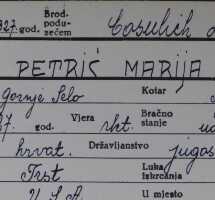 927. god. Brod. podu- zećem Cosulich
PETRIĆ MARIJA
Gornje Selo Kotar
7. god. Vjera rkt. Bračno stanje
hrvat. Državljanstvo jugos
Trst Luka iskrcanja
U.S.A. U mjesto